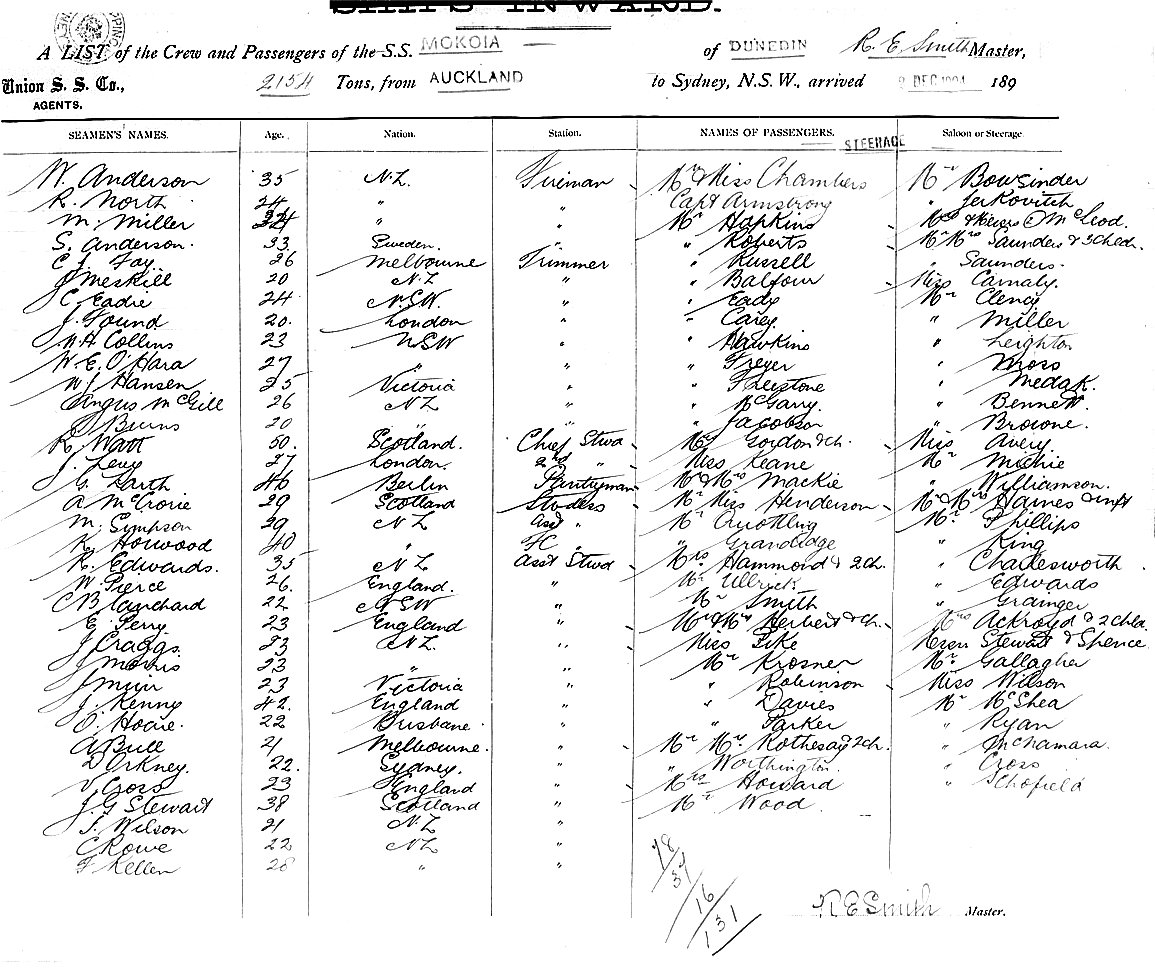 SHIPS INWARD.
A LIST of the Crew and Passengers of the S.S. MOKOIA of DUNEDIN R. E. Smith Master,
Union S. S. Co., 2154 Tons, from AUCKLAND to Sydney, N.S.W., arrived DEC 1904 189
AGENTS.
SEAMEN'S NAMES. Age. Nation. Station. NAMES OF PASSENGERS. Saloon or Steerage.
STEERAGE
W. Anderson 35 N.Z. Fireman Mr & Miss Chambers Mr Bowsinder
R. North 24 " " Capt Armstrong " Jerkovitch
M. Miller 34 " " Mr Hopkins McLeod.
S. Anderson. 33 Sweden. " " Roberts Mr Mrs Saunders & 3 Ched.
C J Fay 26 Melbourne Trimmer " Russell " Saunders.
J Meskill 20 N.Z " " Balfour Miss Carnaly.
C. Eadie 24 N.S.W. " " Eady Mr Clency
J. Found 20. London " " Carey " Miller
W.H. Collins 23 NSW " " Hawkins " Leighton
W. E. O'Hara 27 " " " Freyer " Moss
W J Hansen 25 Victoria " " Freestone " Medak.
Angus McGill 26 NZ " " McGarry. " Bennett.
J Burns 20 " " " Jacobson " Browne.
R. Watt 50. Scotland. Chief Stwd Mrs Gordon & ch. Miss Avery
J. Levy 27 London. 2nd " Miss Keane Mr Michie
G. Harth 46 Berlin Pantryman Mr & Mrs Mackie " Williamson.
A McCrorie 29 Scotland Studess Mr Miss Henderson Mr & Mrs Haines & inft
M. Simpson 29 NZ Asst " Mr Quotling Mr. Phillips
R. Horwood 40 " FC " " Grandidge " King
R. Edwards. 35 NZ Asst Stwd Mrs Hammond & 2 ch. " Charlesworth
W Pierce 26. England. " Mr Ullrick " Edwards
C Blanchard 22 NSW " Mr Smith " Grainger
E. Perry 23 England " Mr & Mrs Herbert & ch. Mrs Ackroyd & 2 chd
J Craggs. 23 NZ. " Miss Pike Messrs Stewart & Spence
J Morris 23 " " Mr Krosner Mr. Gallagher
J Muir 23 Victoria " " Robinson Miss Wilson
J. Kenny 42. England " " Davies Mr McShea
O. Hoare. 22 Brisbane " " Parker " Ryan
A Bull 21 Melbourne. " Mr Mrs. Rothesay & 2 ch. " McNamara.
D Orkney. 22. Sydney. " " Worthington. " Cross
V Cross 23 England " Mrs Howard " Schofield
J. G Stewart 38 Scotland " Mr Wood.
T. Wilson 21 NZ "
C Rowe 22 NZ "
F Kellen 28 " "
78/
37/
16/
131
R E Smith Master.